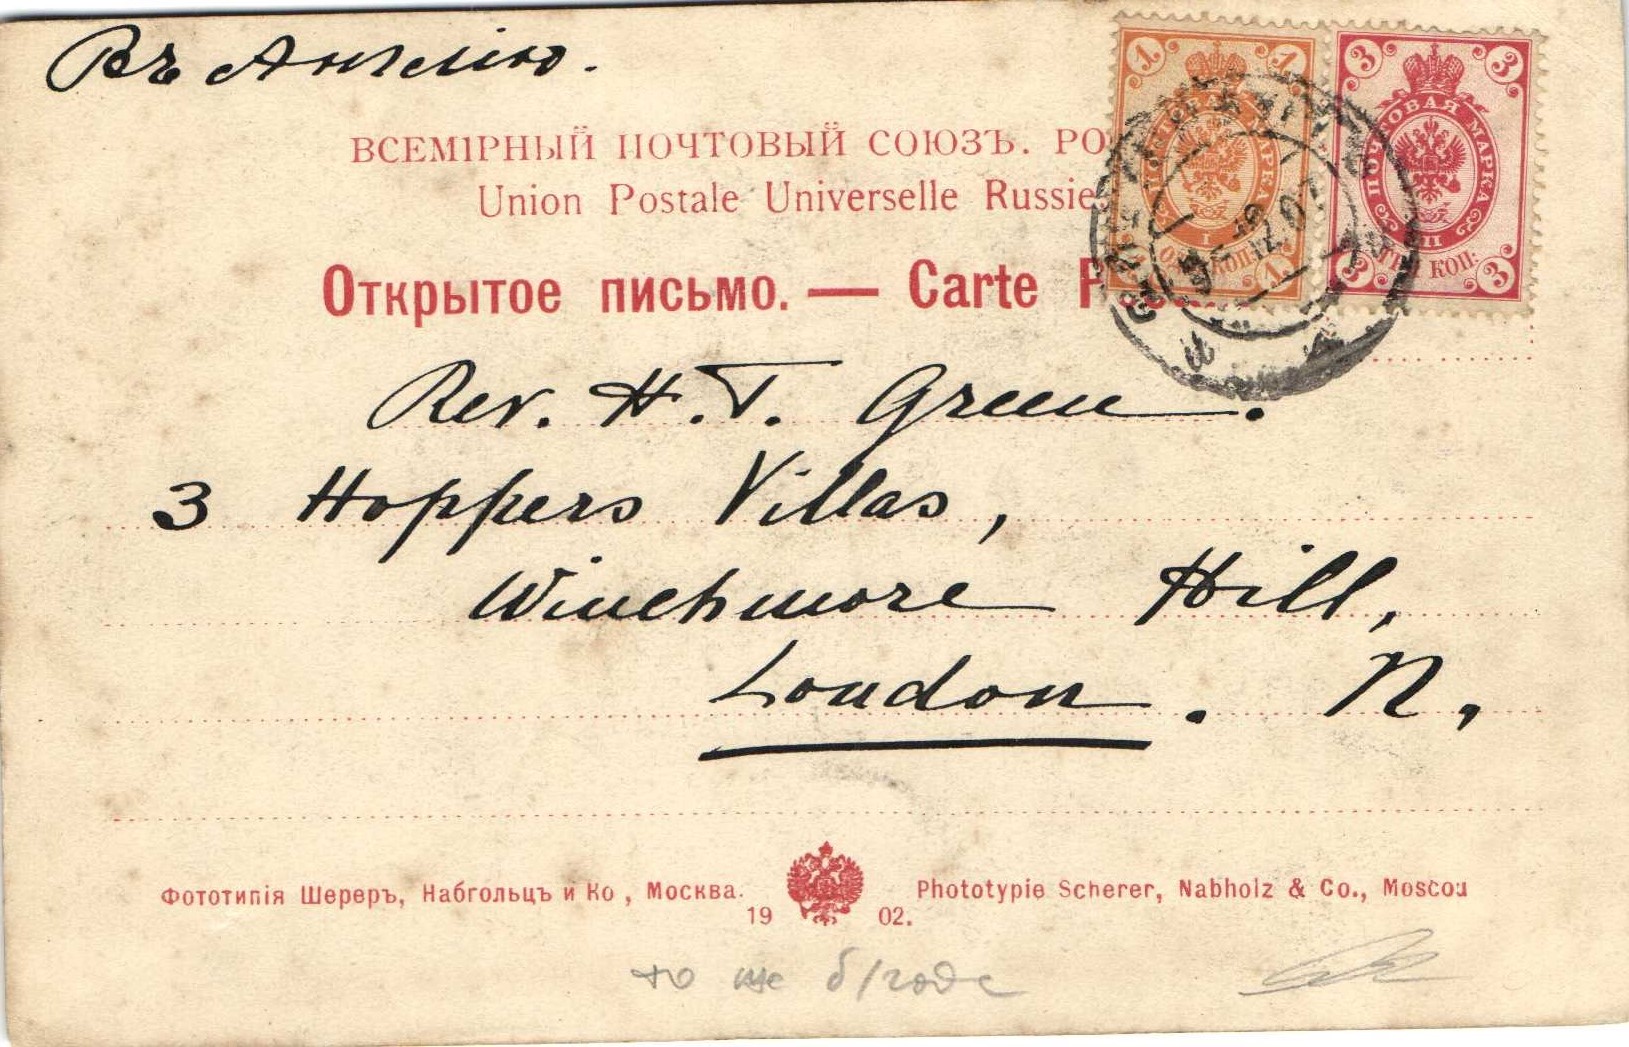 Въ Англію.
ВСЕМІРНЫЙ ПОЧТОВЫЙ СОЮЗЪ. РО
Union Postale Universelle Russie
Открытое письмо. — Carte P
1 1
ПОЧТОВАЯ МАРКА
КОП.
1
3 3
ПОЧТОВАЯ МАРКА
ТРИ КОП:
3 3
Rev. H. T. Green.
3 Hoppers Villas,
Winchmore Hill,
London. N,
Фототипія Шереръ, Набгольцъ и Ко, Москва.
19 02.
Phototypie Scherer, Nabholz & Co., Moscou
то же б/годе